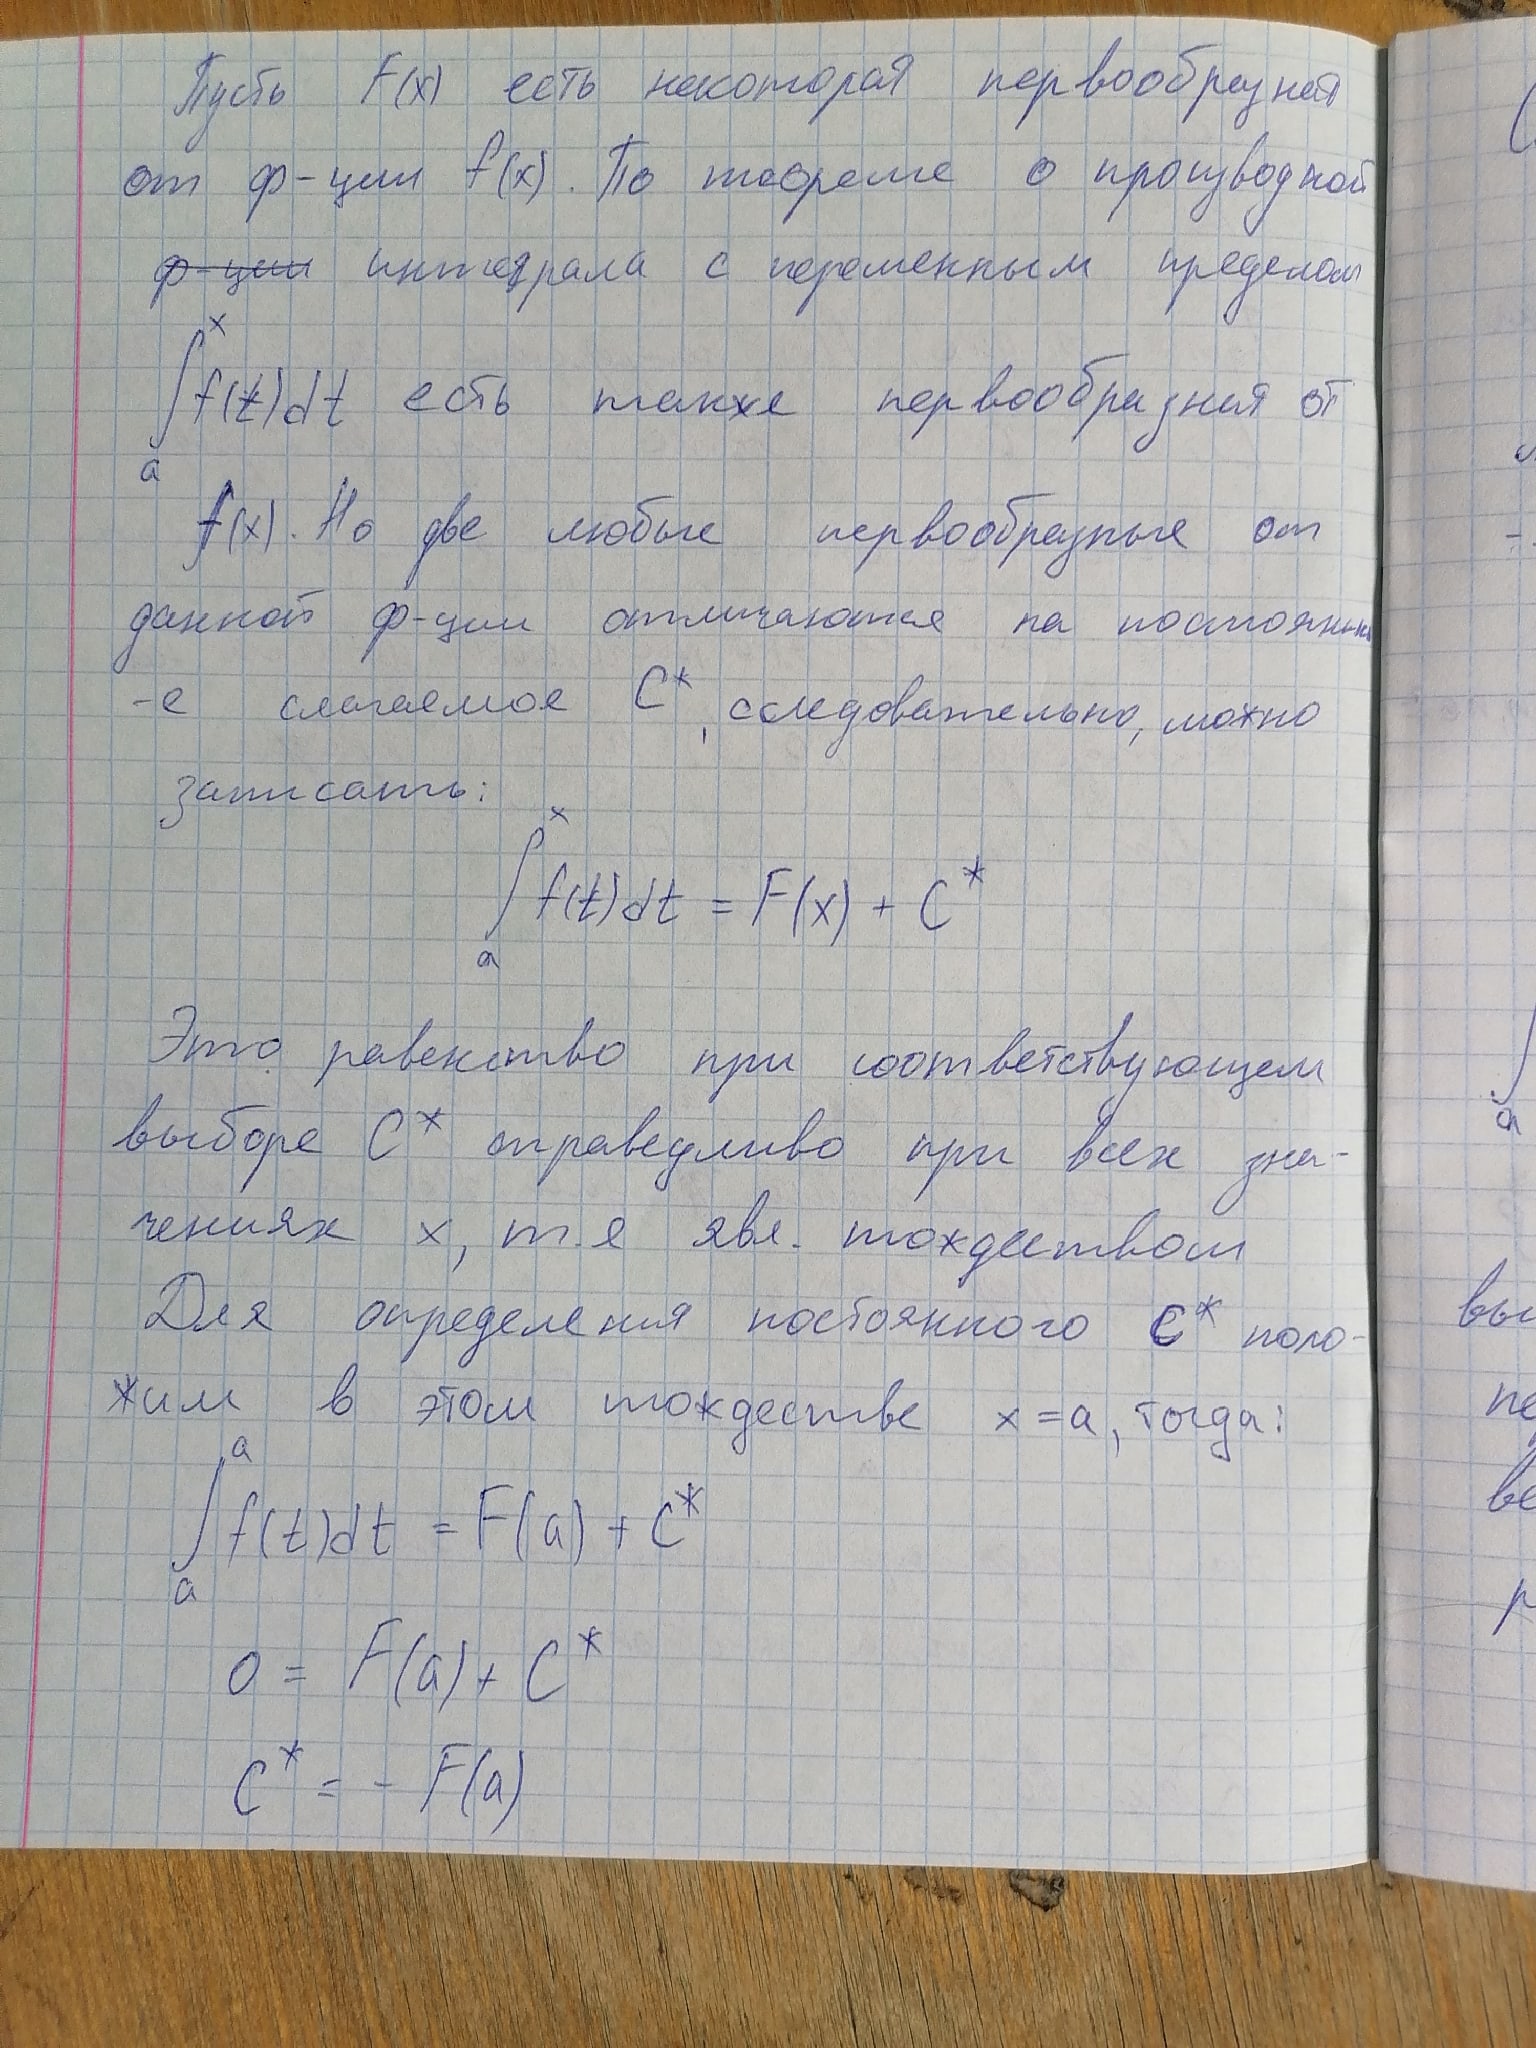 Пусть F(x) есть некоторая первообразная
от ф-ции f(x). По теореме о производной
ф-ции интеграла с переменным пределом
∫ₐˣ f(t)dt есть также первообразная от
f(x). Но две любые первообразные от
данной ф-ции отличаются на постоянны
-е слагаемое C*, следовательно, можно
записать:
∫ₐˣ f(t)dt = F(x) + C*
Это равенство при соответствующем
выборе C* справедливо при всех зна-
чениях x, т.е явл. тождеством
Для определения постоянного C* поло-
жим в этом тождестве x=a, тогда:
∫ₐᵃ f(t)dt = F(a) + C*
0 = F(a) + C*
C* = - F(a)